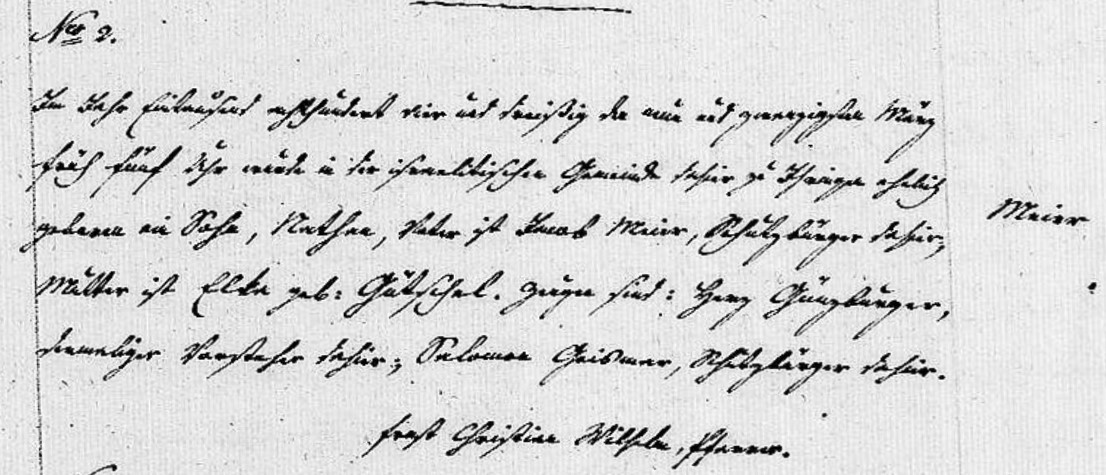 Nro 2.
Im Jahr Eintausend achthundert vier und dreißig den neun und zwanzigsten März
früh fünf Uhr wurde in der israelitischen Gemeinde dahier zu Ihringen ehelich
geboren ein Sohn, Nathan, Vater ist Jacob Meier, Schutzbürger dahier,
Meier
Mutter ist Elka geb: Götschel. Zeugen sind: Herz Günzburger,
dermaliger Vorsteher dahier; Salomon Geismar, Schutzbürger dahier.
Ernst Christian Wilhelm, Pfarrer.